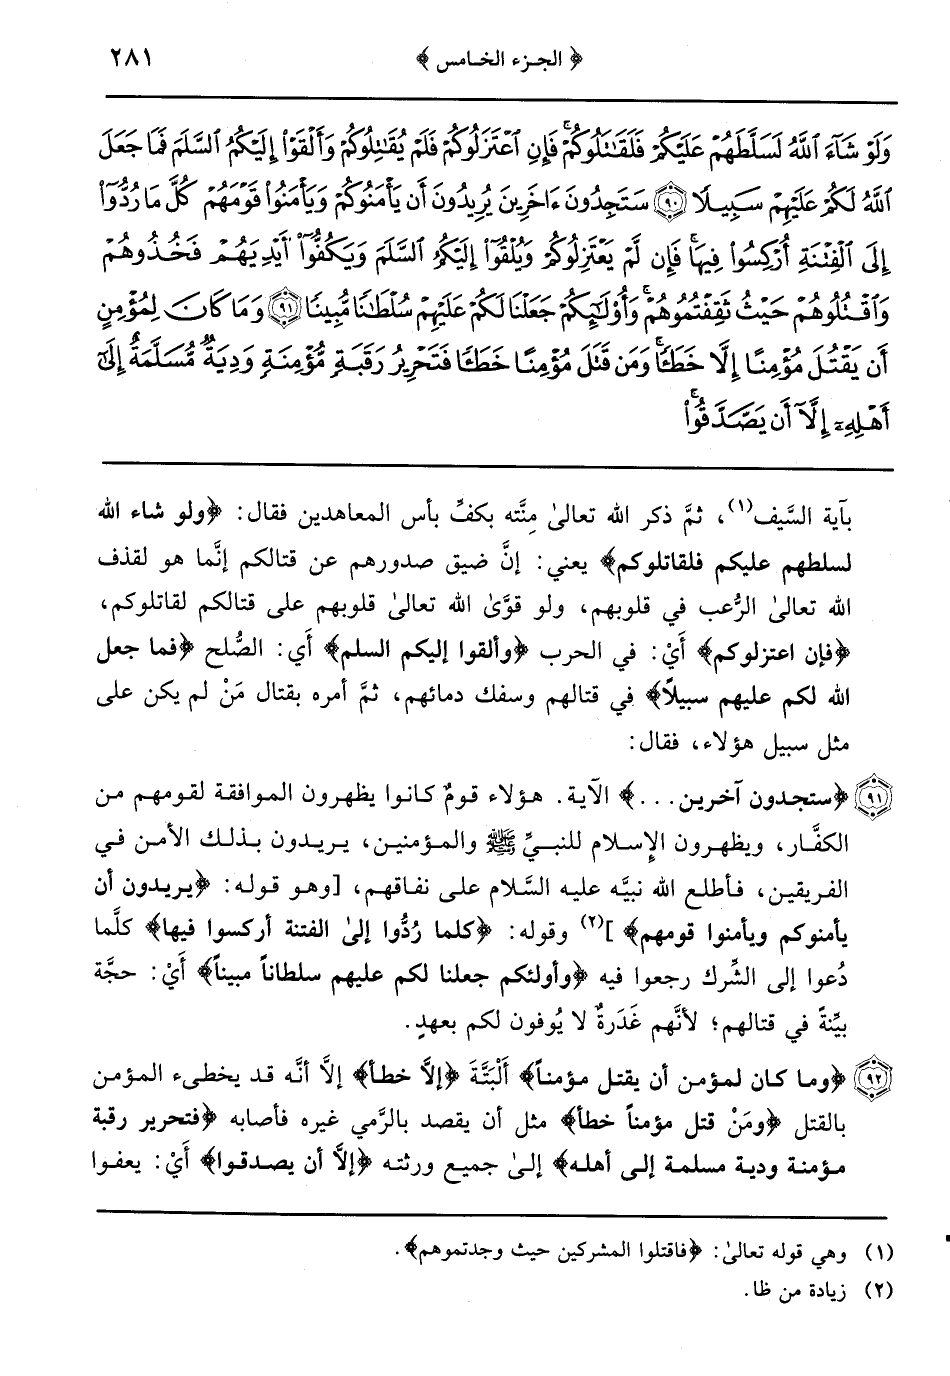 ﴿ الجزء الخامس ﴾ ٢٨١
وَلَوْ شَآءَ ٱللَّهُ لَسَلَّطَهُمْ عَلَيْكُمْ فَلَقَٰتَلُوكُمْ ۚ فَإِنِ ٱعْتَزَلُوكُمْ فَلَمْ يُقَٰتِلُوكُمْ وَأَلْقَوْا۟ إِلَيْكُمُ ٱلسَّلَمَ فَمَا جَعَلَ
ٱللَّهُ لَكُمْ عَلَيْهِمْ سَبِيلًا ﴿٩٠﴾ سَتَجِدُونَ ءَاخَرِينَ يُرِيدُونَ أَن يَأْمَنُوكُمْ وَيَأْمَنُوا۟ قَوْمَهُمْ كُلَّ مَا رُدُّوٓا۟
إِلَى ٱلْفِتْنَةِ أُرْكِسُوا۟ فِيهَا ۚ فَإِن لَّمْ يَعْتَزِلُوكُمْ وَيُلْقُوٓا۟ إِلَيْكُمُ ٱلسَّلَمَ وَيَكُفُّوٓا۟ أَيْدِيَهُمْ فَخُذُوهُمْ
وَٱقْتُلُوهُمْ حَيْثُ ثَقِفْتُمُوهُمْ ۚ وَأُو۟لَٰٓئِكُمْ جَعَلْنَا لَكُمْ عَلَيْهِمْ سُلْطَٰنًا مُّبِينًا ﴿٩١﴾ وَمَا كَانَ لِمُؤْمِنٍ
أَن يَقْتُلَ مُؤْمِنًا إِلَّا خَطَـًٔا ۚ وَمَن قَتَلَ مُؤْمِنًا خَطَـًٔا فَتَحْرِيرُ رَقَبَةٍ مُّؤْمِنَةٍ وَدِيَةٌ مُّسَلَّمَةٌ إِلَىٰٓ
أَهْلِهِۦٓ إِلَّآ أَن يَصَّدَّقُوا۟ ۚ
بآية السَّيف(١)، ثمَّ ذكر الله تعالىٰ مِنَّته بكفِّ بأس المعاهدين فقال: ﴿ولو شاء الله
لسلطهم عليكم فلقاتلوكم﴾ يعني: إنَّ ضيق صدورهم عن قتالكم إنَّما هو لقذف
الله تعالىٰ الرُّعب في قلوبهم، ولو قوَّىٰ الله تعالىٰ قلوبهم على قتالكم لقاتلوكم،
﴿فإن اعتزلوكم﴾ أَيْ: في الحرب ﴿وألقوا إليكم السلم﴾ أَي: الصُّلح ﴿فما جعل
الله لكم عليهم سبيلاً﴾ في قتالهم وسفك دمائهم، ثمَّ أمره بقتال مَنْ لم يكن على
مثل سبيل هؤلاء، فقال:
﴿٩١﴾ ﴿ستجدون آخرين...﴾ الآية. هؤلاء قومٌ كانوا يظهرون الموافقة لقومهم من
الكفَّار، ويظهرون الإِسلام للنبيِّ ﷺ والمؤمنين، يريدون بذلك الأمن في
الفريقين، فأطلع الله نبيَّه عليه السَّلام على نفاقهم، [وهو قوله: ﴿يريدون أن
يأمنوكم ويأمنوا قومهم﴾](٢) وقوله: ﴿كلما رُدُّوا إلىٰ الفتنة أركسوا فيها﴾ كلَّما
دُعوا إلى الشِّرك رجعوا فيه ﴿وأولئكم جعلنا لكم عليهم سلطاناً مبيناً﴾ أَيْ: حجَّة
بيِّنةً في قتالهم؛ لأنَّهم غَدَرةٌ لا يُوفون لكم بعهدٍ.
﴿٩٢﴾ ﴿وما كان لمؤمن أن يقتل مؤمناً﴾ أَلْبَتَّةَ ﴿إلاَّ خطأ﴾ إلاَّ أنَّه قد يخطىء المؤمن
بالقتل ﴿ومَنْ قتل مؤمناً خطأ﴾ مثل أن يقصد بالرَّمي غيره فأصابه ﴿فتحرير رقبة
مؤمنة ودية مسلمة إلى أهله﴾ إلىٰ جميع ورثته ﴿إلاَّ أن يصدقوا﴾ أَيْ: يعفوا
(١) وهي قوله تعالىٰ: ﴿فاقتلوا المشركين حيث وجدتموهم﴾.
(٢) زيادة من ظا.